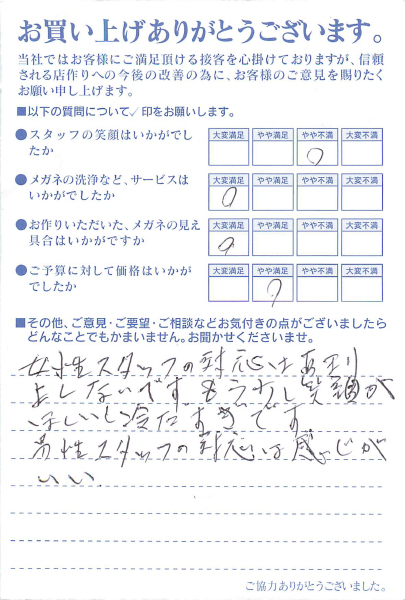 お買い上げありがとうございます。
当社ではお客様にご満足頂ける接客を心掛けておりますが、信頼
される店作りへの今後の改善の為に、お客様のご意見を賜りたく
お願い申し上げます。
■以下の質問について✓印をお願いします。
●スタッフの笑顔はいかがでし
たか
大変満足 やや満足 やや不満 大変不満
●メガネの洗浄など、サービスは
いかがでしたか
大変満足 やや満足 やや不満 大変不満
●お作りいただいた、メガネの見え
具合はいかがですか
大変満足 やや満足 やや不満 大変不満
●ご予算に対して価格はいかが
でしたか
大変満足 やや満足 やや不満 大変不満
■その他、ご意見・ご要望・ご相談などお気付きの点がございましたら
どんなことでもかまいません。お聞かせくださいませ。
女性スタッフの対応はあまり
よくないです もう少し笑顔が
ほしいし冷たすぎです
男性スタッフの対応は感じが
いい
ご協力ありがとうございました。